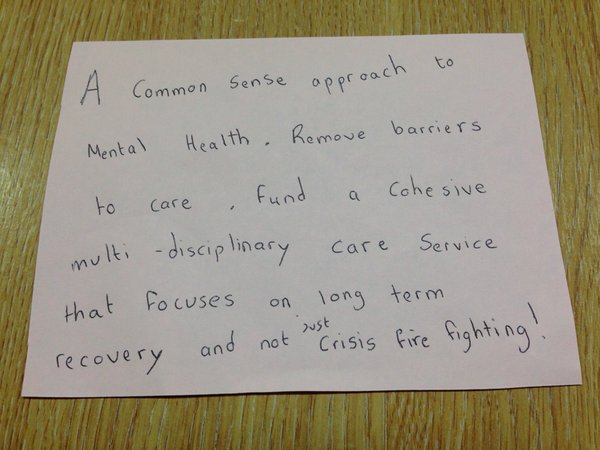 A Common sense approach to
Mental Health. Remove barriers
to care. Fund a Cohesive
multi-disciplinary care Service
that focuses on long term
recovery and not just Crisis fire fighting!